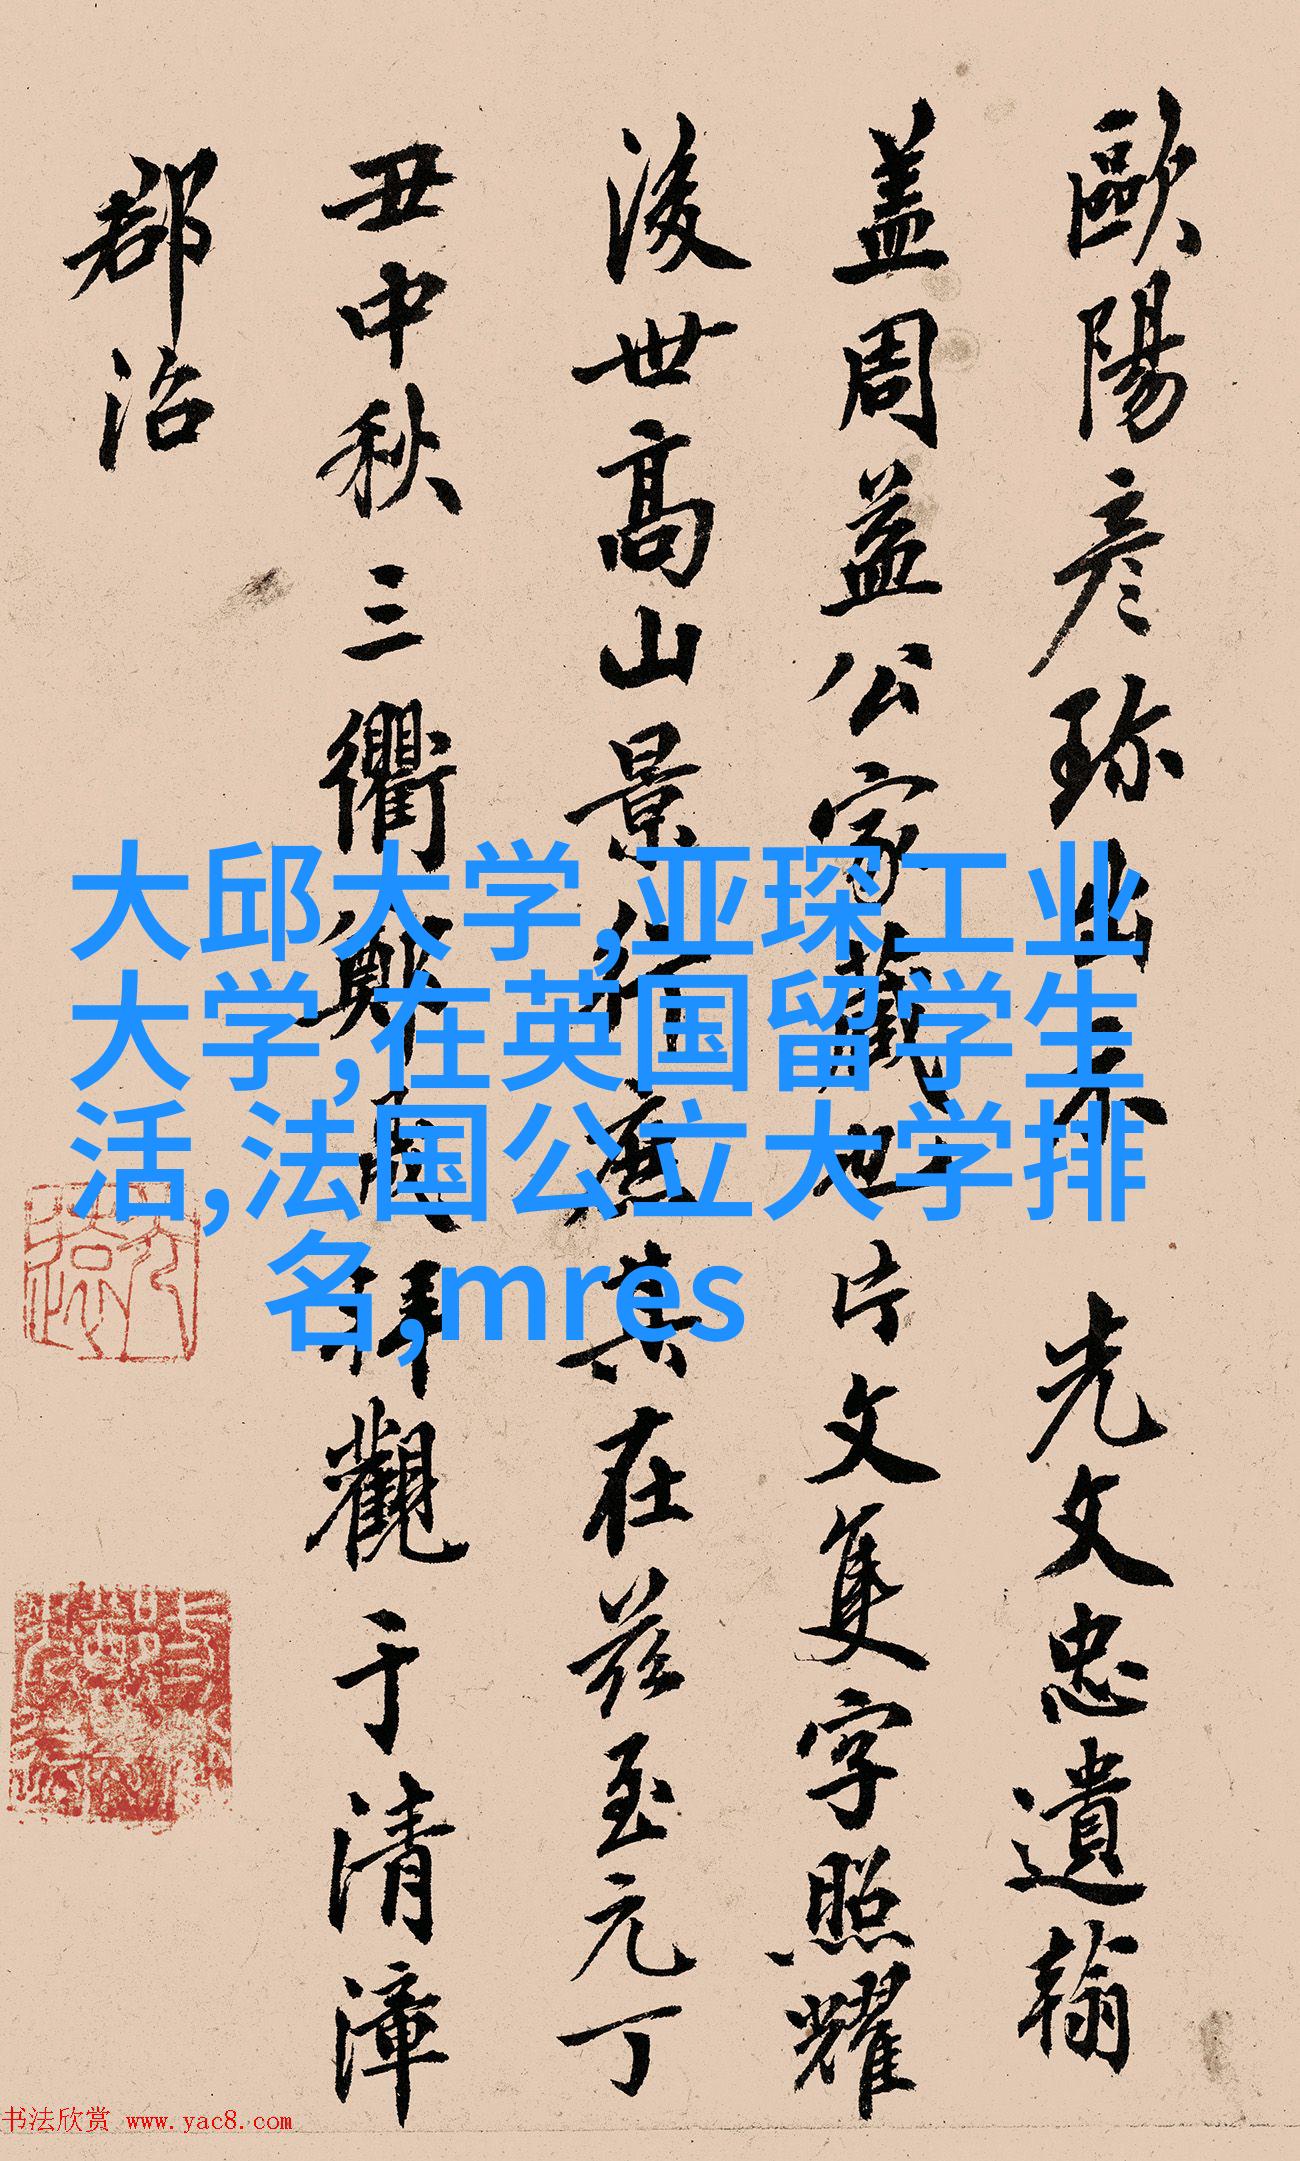 歐陽彥珎出示 光文忠遺翰
盖周益公家藏也片文隻字照耀
後世高山景行
其在兹至元丁
丑中秋三衢鄭
拜觀于清漳
郡治
大邱大学,亚琛工业
大学,在英国留学生
活,法国公立大学排
名,mres
书法欣赏 www.yac8.com